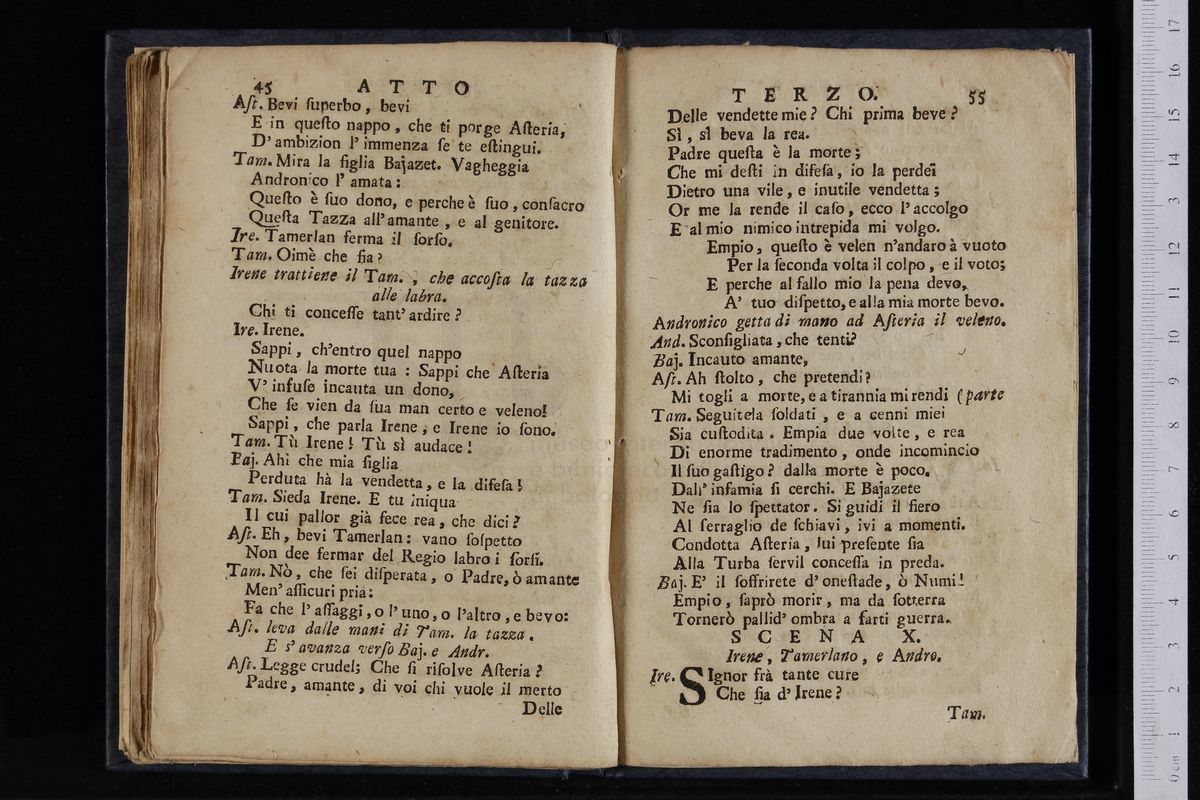 45 ATTO
Aſt. Bevi ſuperbo, bevi
E in queſto nappo, che ti porge Aſteria,
D' ambizion l' immenza ſe te eſtingui.
Tam. Mira la figlia Bajazet. Vagheggia
Andronico l' amata:
Queſto è ſuo dono, e perche è ſuo, conſacro
Queſta Tazza all'amante, e al genitore.
Ire. Tamerlan ferma il ſorſo.
Tam. Oimè che ſia?
Irene trattiene il Tam., che accoſta la tazza
alle labra.
Chi ti conceſſe tant' ardire?
Ire. Irene.
Sappi, ch'entro quel nappo
Nuota la morte tua: Sappi che Aſteria
V' infuſe incauta un dono,
Che ſe vien da ſua man certo e veleno!
Sappi, che parla Irene, e Irene io ſono.
Tam. Tù Irene! Tù sì audace!
Baj. Ahi che mia figlia
Perduta hà la vendetta, e la difeſa!
Tam. Sieda Irene. E tu iniqua
Il cui pallor già fece rea, che dici?
Aſt. Eh, bevi Tamerlan: vano ſoſpetto
Non dee fermar del Regio labro i ſorſi.
Tam. Nò, che ſei diſperata, o Padre, ò amante
Men' aſſicuri pria:
Fa che l' aſſaggi, o l' uno, o l'altro, e bevo:
Aſt. leva dalle mani di Tam. la tazza.
E s' avanza verſo Baj. e Andr.
Aſt. Legge crudel; Che ſi riſolve Aſteria?
Padre, amante, di voi chi vuole il merto
Delle
TERZO. 55
Delle vendette mie? Chi prima beve?
Sì, sì beva la rea.
Padre queſta è la morte;
Che mi deſti in difeſa, io la perdei
Dietro una vile, e inutile vendetta;
Or me la rende il caſo, ecco l'accolgo
E al mio nimico intrepida mi volgo.
Empio, queſto è velen n'andaro à vuoto
Per la ſeconda volta il colpo, e il voto;
E perche al fallo mio la pena devo,
A' tuo diſpetto, e alla mia morte bevo.
Andronico getta di mano ad Aſteria il veleno.
And. Sconſigliata, che tenti?
Baj. Incauto amante,
Aſt. Ah ſtolto, che pretendi?
Mi togli a morte, e a tirannia mi rendi (parte
Tam. Seguitela ſoldati, e a cenni miei
Sia cuſtodita. Empia due volte, e rea
Di enorme tradimento, onde incomincio
Il ſuo gaſtigo? dalla morte è poco.
Dall' infamia ſi cerchi. E Bajazete
Ne ſia lo ſpettator. Si guidi il fiero
Al ſerraglio de ſchiavi, ivi a momenti.
Condotta Aſteria, lui preſente ſia
Alla Turba ſervil conceſſa in preda.
Baj. E' il ſoffrirete d' oneſtade, ò Numi!
Empio, ſaprò morir, ma da ſotterra
Tornerò pallid' ombra a farti guerra.
SCENA X.
Irene, Tamerlano, e Andro.
Ire. SIgnor frà tante cure
Che ſia d' Irene?
Tam.